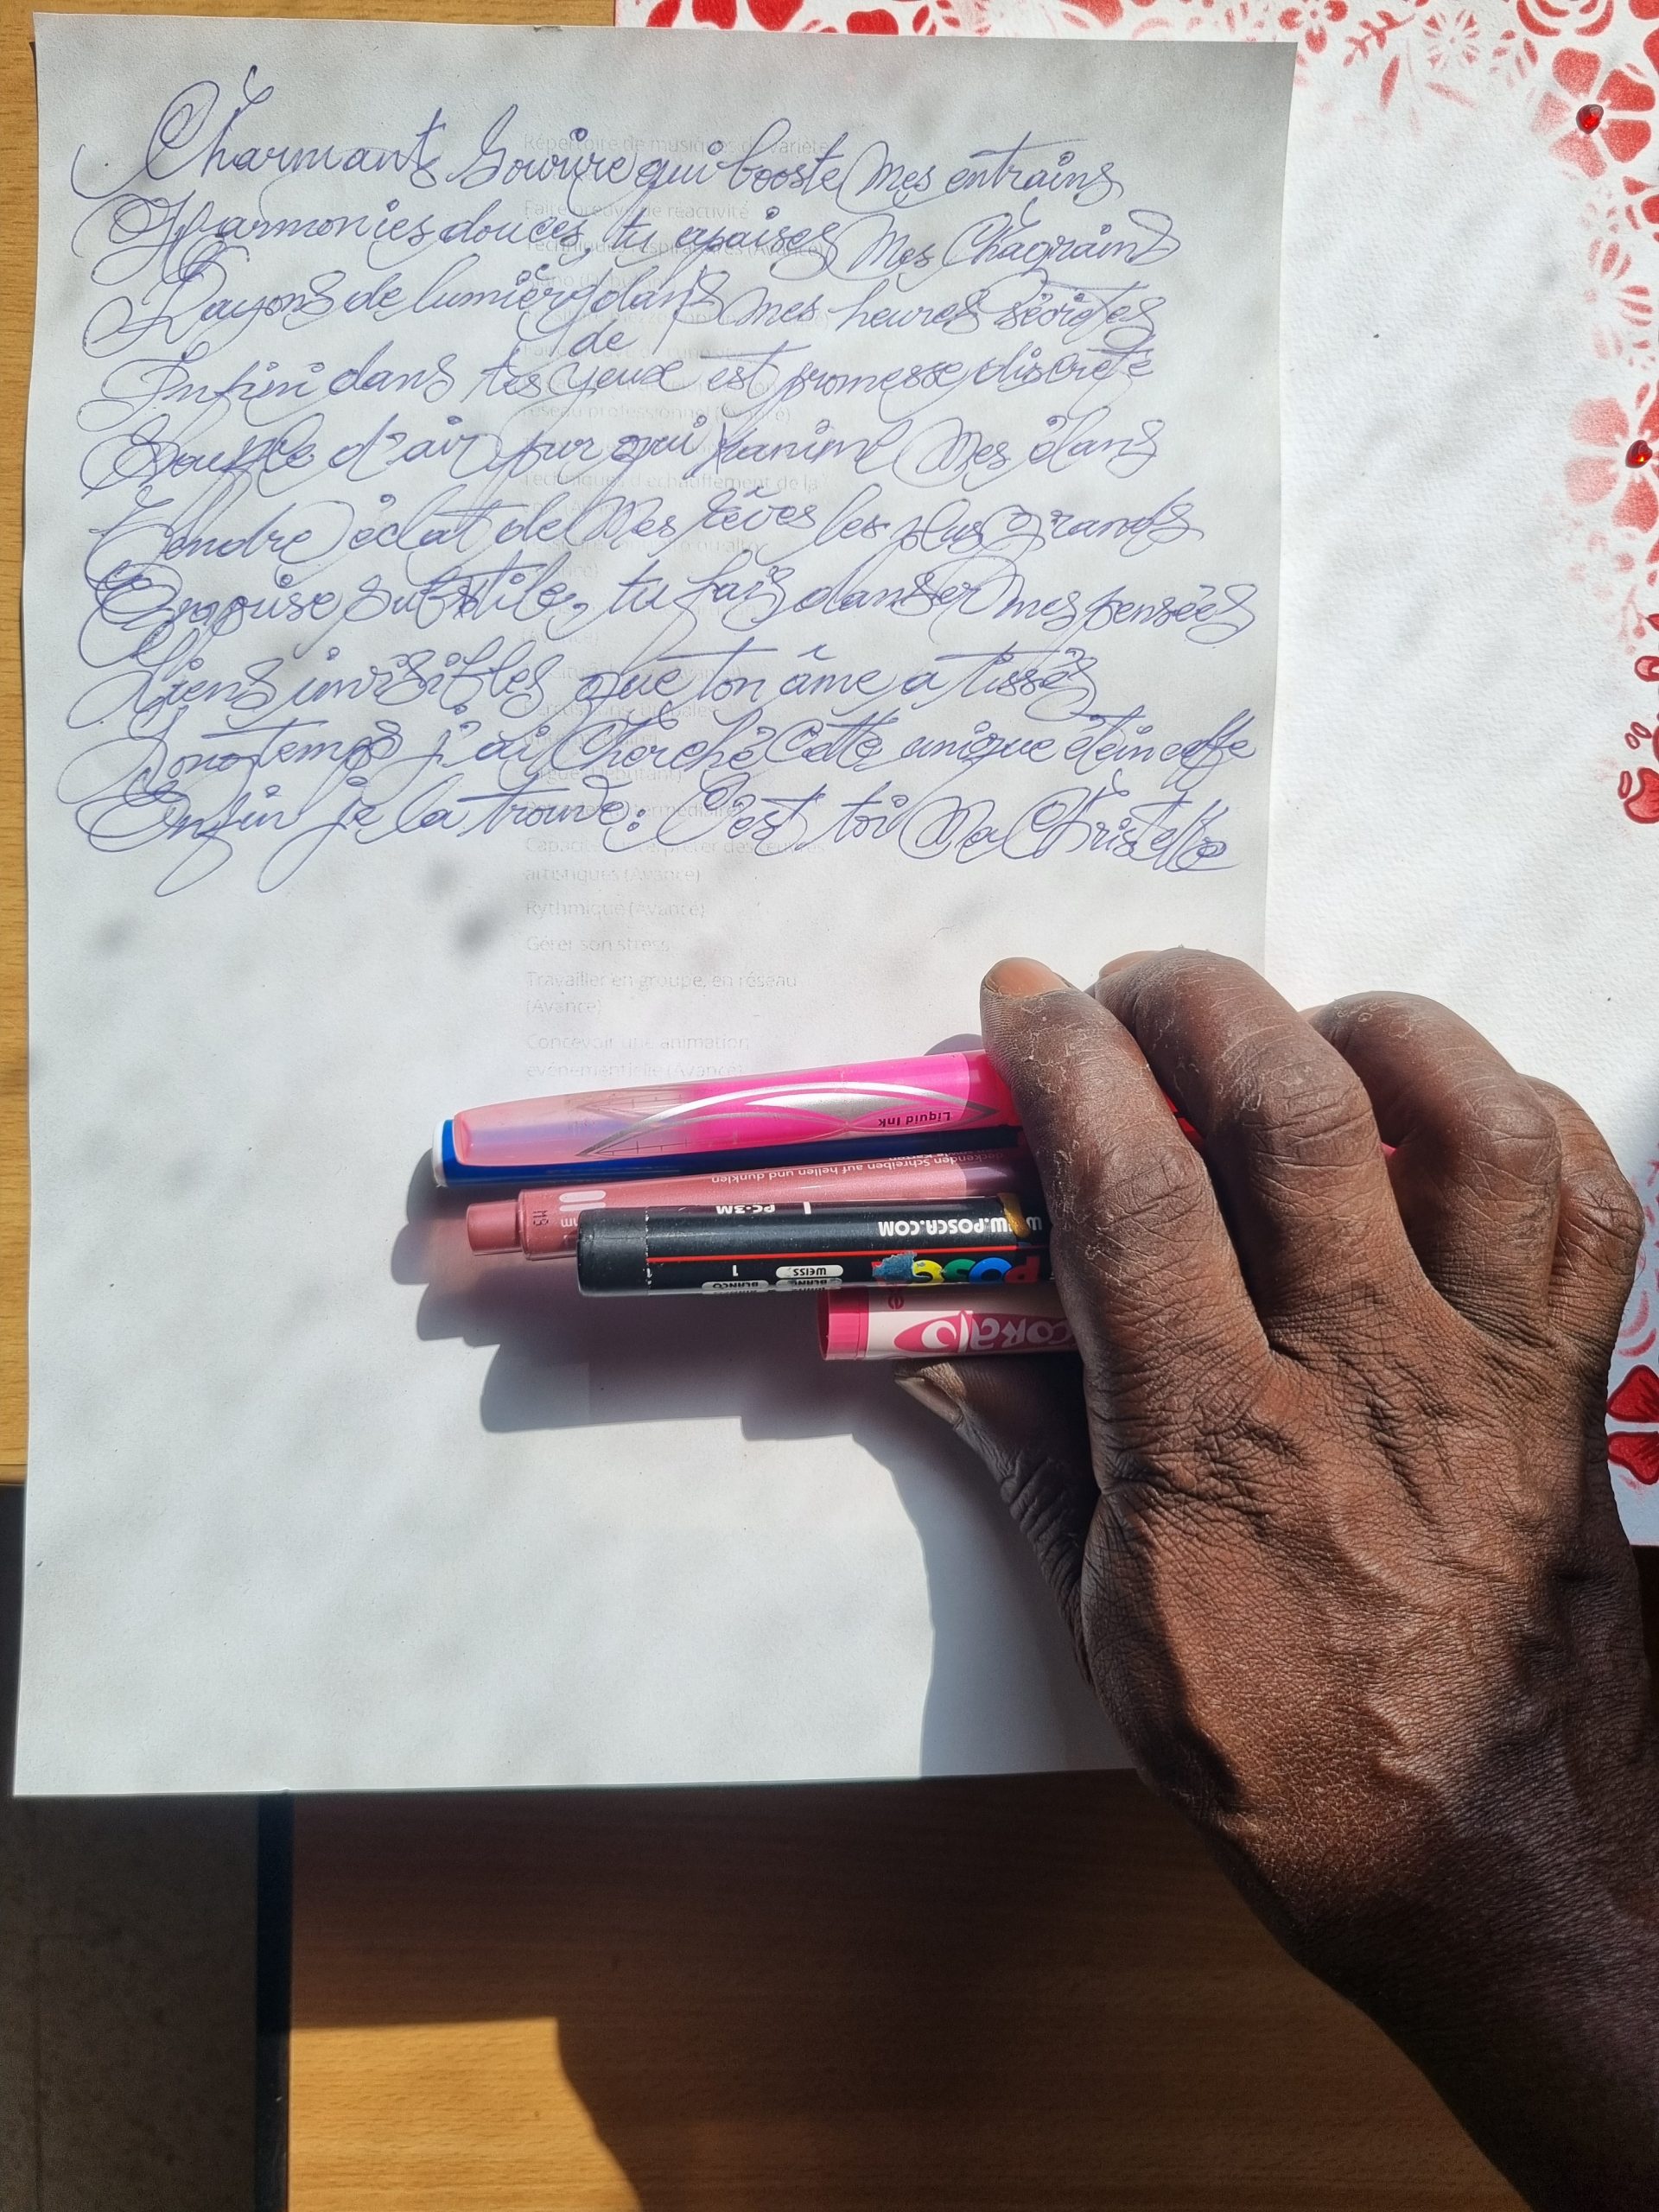 Charmant Sourire qui booste Mes entrains
Harmonies douces, tu apaises Mes Chagrains
Rayons de lumière dans mes heures secrètes
de
Infini dans tes yeux est promesse discrète
Souffle d'air pur qui ranime Mes élans
Tendre éclat de Mes rêves les plus Grands
Exquise subtile, tu fais danser mes pensées
Liens invisibles que ton âme a tissés
Longtemps j'ai Cherché Cette unique étincelle
Enfin je la trouve: C'est toi Ma Christelle
Répertoire de musiques de variété
Faire preuve de réactivité
réseau professionnel (Avancé)
Techniques d'échauffement de la
artistiques (Avancé)
Rythmique (Avancé)
Gérer son stress
Travailler en groupe, en réseau
(Avancé)
Concevoir une animation
événementielle (Avancé)
Liquid Ink
deckenden Schreiben auf hellen und dunklen
PC-3M
W.POSCA.COM
POSCA
1
WEISS
BLANCO